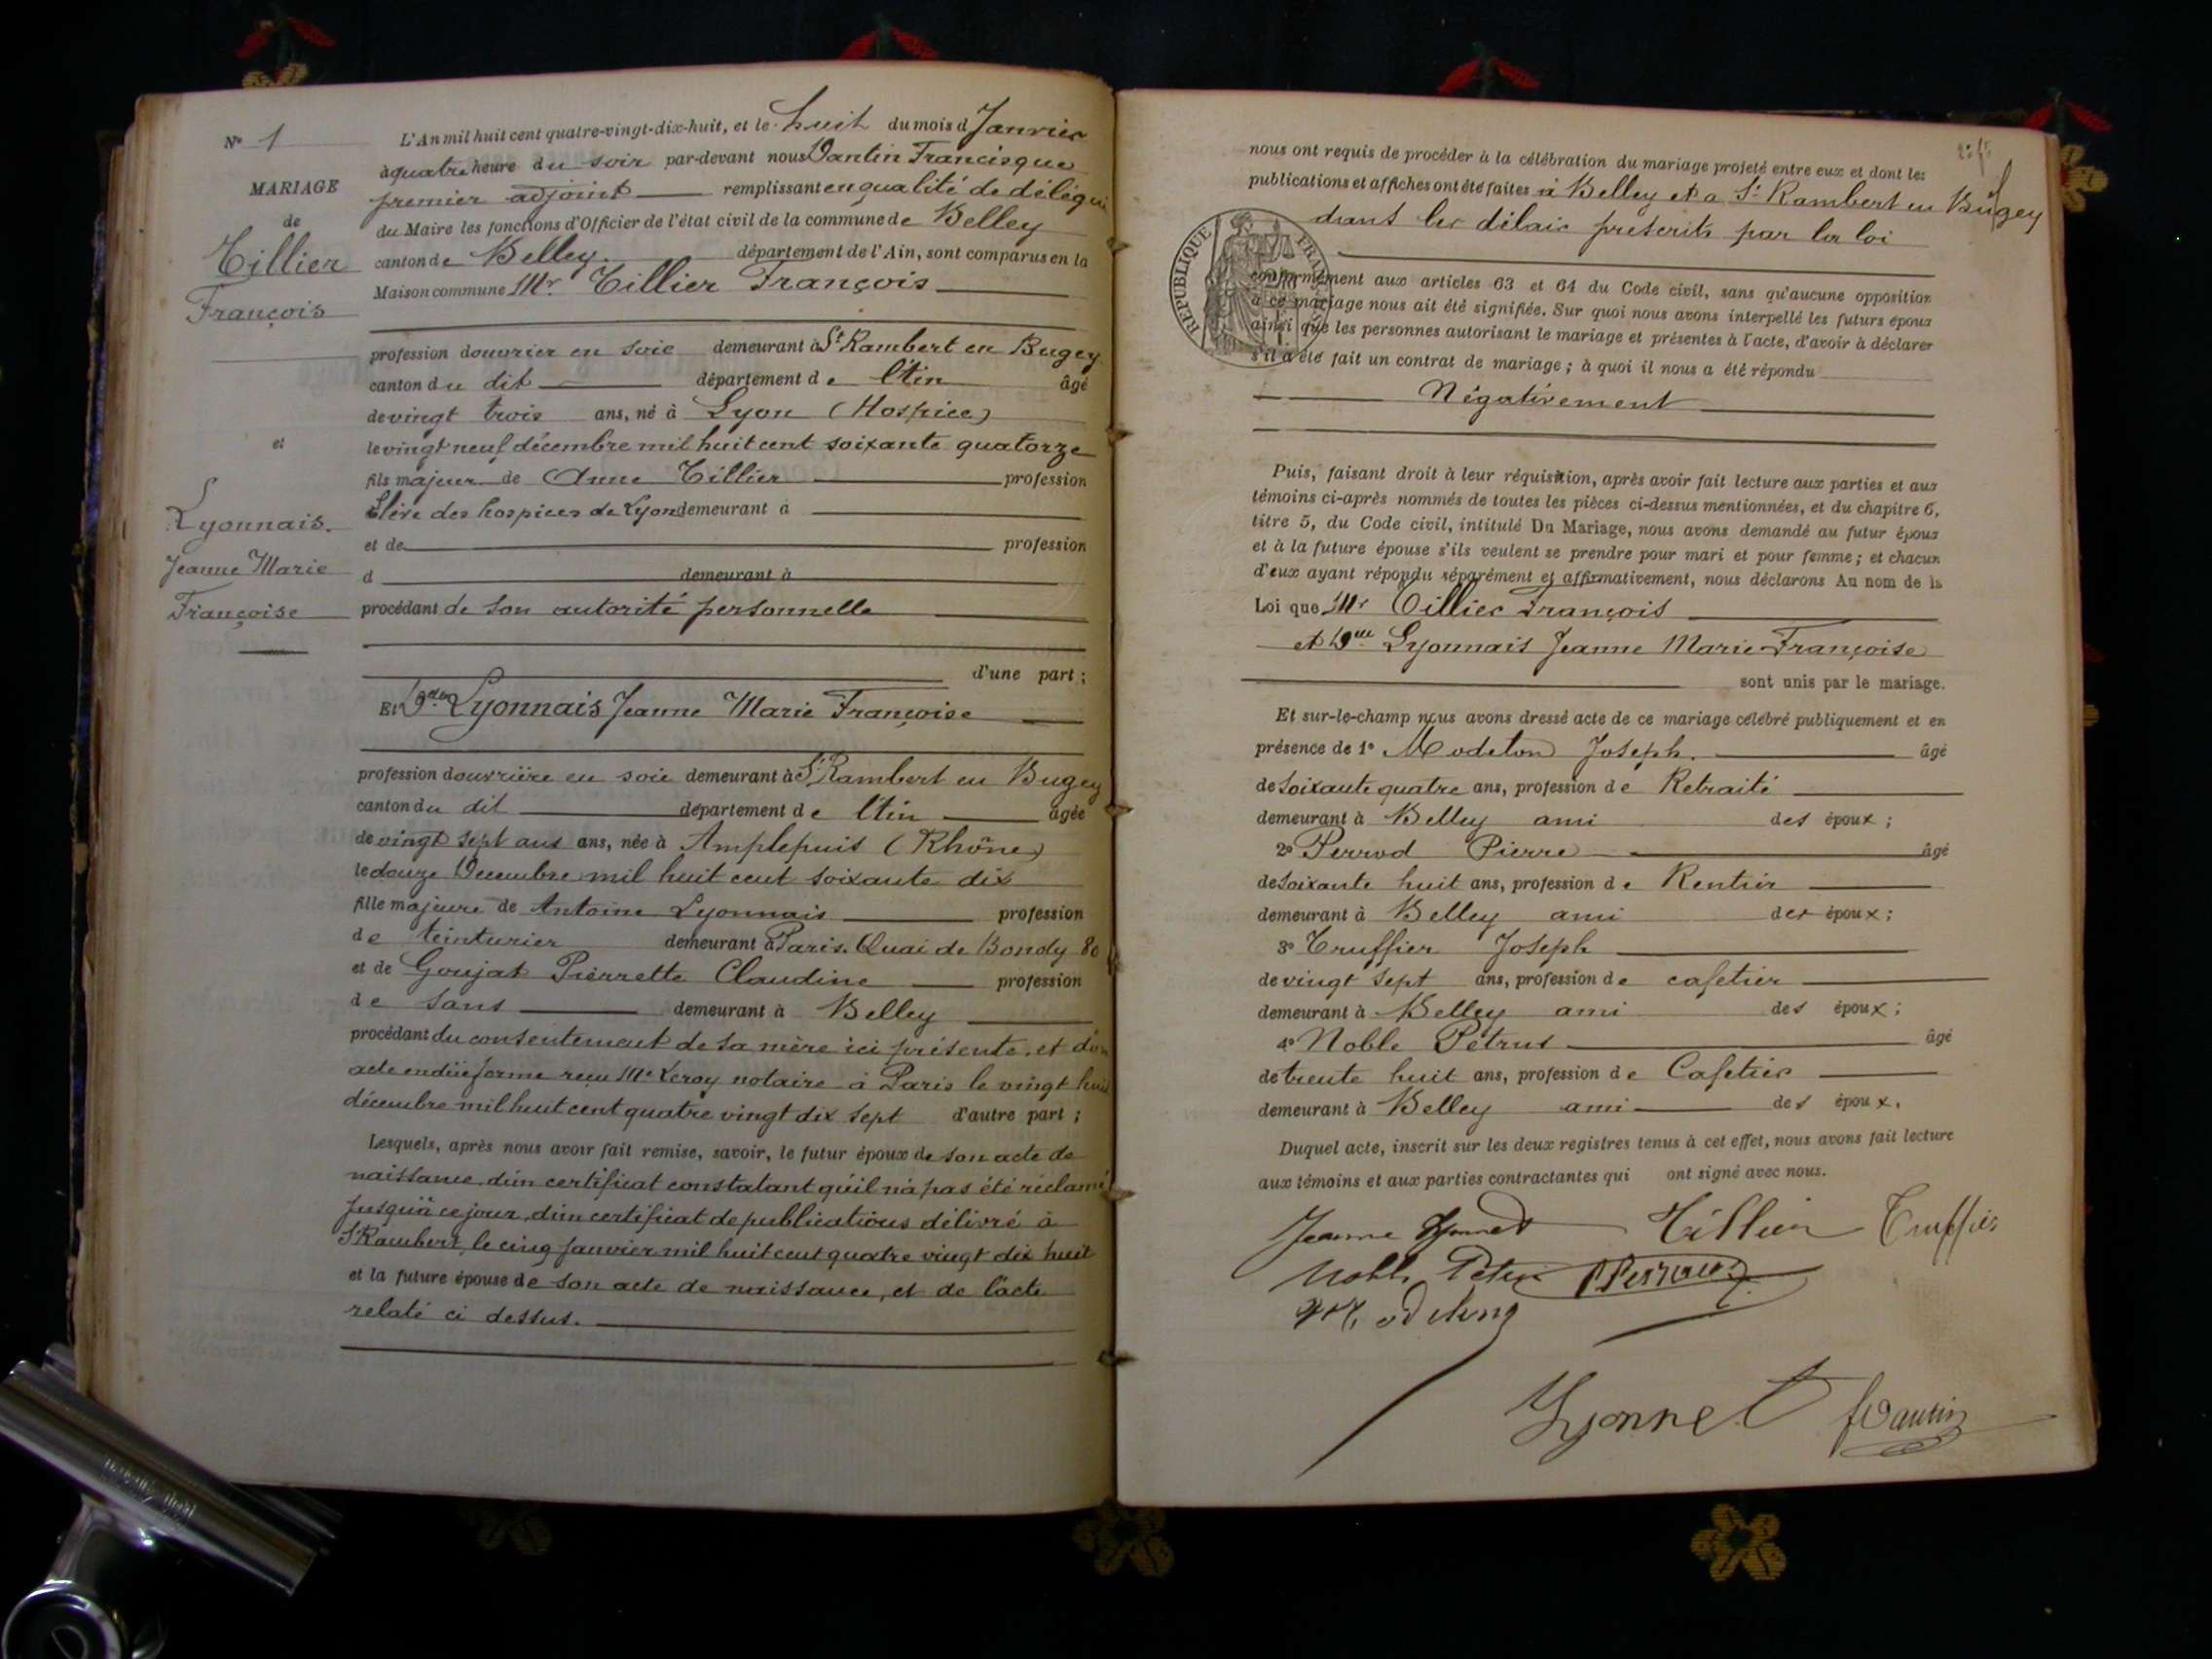 N° 1
MARIAGE
de
Tillier
François
et
Lyonnais.
Jeanne Marie
Françoise
L'An mil huit cent quatre-vingt-dix-huit, et le huit du mois d Janvier
à quatre heure du soir par-devant nous Vantin Francisque
premier adjoint remplissant en qualité de délégué
du Maire les fonctions d'Officier de l'état civil de la commune de Belley
canton de Belley. département de l'Ain, sont comparus en la
Maison commune Mr. Tillier François
profession d'ouvrier en soie demeurant à St Rambert en Bugey
canton du dit département de l'Ain âgé
de vingt trois ans, né à Lyon (Hospice)
le vingt neuf décembre mil huit cent soixante quatorze
fils majeur de Anne Tillier profession
Elève des hospices de Lyon demeurant à
et de profession
d demeurant à
procédant de son autorité personnelle
d'une part ;
Et Delle Lyonnais Jeanne Marie Françoise
profession d'ouvrière en soie demeurant à St Rambert en Bugey
canton du dit département de l'Ain âgée
de vingt sept ans ans, née à Amplepuis (Rhône)
le douze Décembre mil huit cent soixante dix
fille majeure de Antoine Lyonnais profession
de teinturier demeurant à Paris. Quai de Bondy 80
et de Goujat Pierrette Claudine profession
de sans demeurant à Belley
procédant du consentement de sa mère ici présente. et d'un
acte en dûe forme reçu Me Leroy notaire à Paris le vingt huit
décembre mil huit cent quatre vingt dix sept d'autre part ;
Lesquels, après nous avoir fait remise, savoir, le futur époux de son acte de
naissance. d'un certificat constatant qu'il n'a pas été réclamé
jusqu'à ce jour, d'un certificat de publications délivré à
St Rambert, le cinq janvier mil huit cent quatre vingt dix huit
et la future épouse de son acte de naissance, et de l'acte
relaté ci dessus.
nous ont requis de procéder à la célébration du mariage projeté entre eux et dont les
publications et affiches ont été faites à Belley et a St Rambert en Bugey
dans les délais préscrits par la loi
RÉPUBLIQUE FRANÇAISE
conformément aux articles 63 et 64 du Code civil, sans qu'aucune opposition
à ce mariage nous ait été signifiée. Sur quoi nous avons interpellé les futurs époux
ainsi que les personnes autorisant le mariage et présentes à l'acte, d'avoir à déclarer
s'il a été fait un contrat de mariage ; à quoi il nous a été répondu
Négativement
Puis, faisant droit à leur réquisition, après avoir fait lecture aux parties et aux
témoins ci-après nommés de toutes les pièces ci-dessus mentionnées, et du chapitre 6,
titre 5, du Code civil, intitulé Du Mariage, nous avons demandé au futur époux
et à la future épouse s'ils veulent se prendre pour mari et pour femme ; et chacun
d'eux ayant répondu séparément et affirmativement, nous déclarons Au nom de la
Loi que Mr Tillier François
et Dlle Lyonnais Jeanne Marie Françoise
sont unis par le mariage.
Et sur-le-champ nous avons dressé acte de ce mariage célébré publiquement et en
présence de 1° Modeton Joseph. âgé
de soixante quatre ans, profession de Retraité
demeurant à Belley ami des époux ;
2° Perrod Pierre âgé
de soixante huit ans, profession de Rentier
demeurant à Belley ami des époux ;
3° Truffier Joseph
de vingt sept ans, profession de cafetier
demeurant à Belley ami des époux ;
4° Noble Pétrus âgé
de trente huit ans, profession de Cafetier
demeurant à Belley ami des époux.
Duquel acte, inscrit sur les deux registres tenus à cet effet, nous avons fait lecture
aux témoins et aux parties contractantes qui ont signé avec nous.
Jeanne Tillier Truffier
Noble
Lyonnet